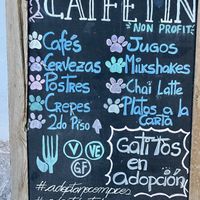 CATFETÍN
NON PROFIT
Cafés
Cervezas
Postres
Crepes
2do Piso
Jugos
Milkshakes
Chai Latte
Platos a la
Carta
V VE
GF
Gatitos
en
adopción
#adoptanocompres